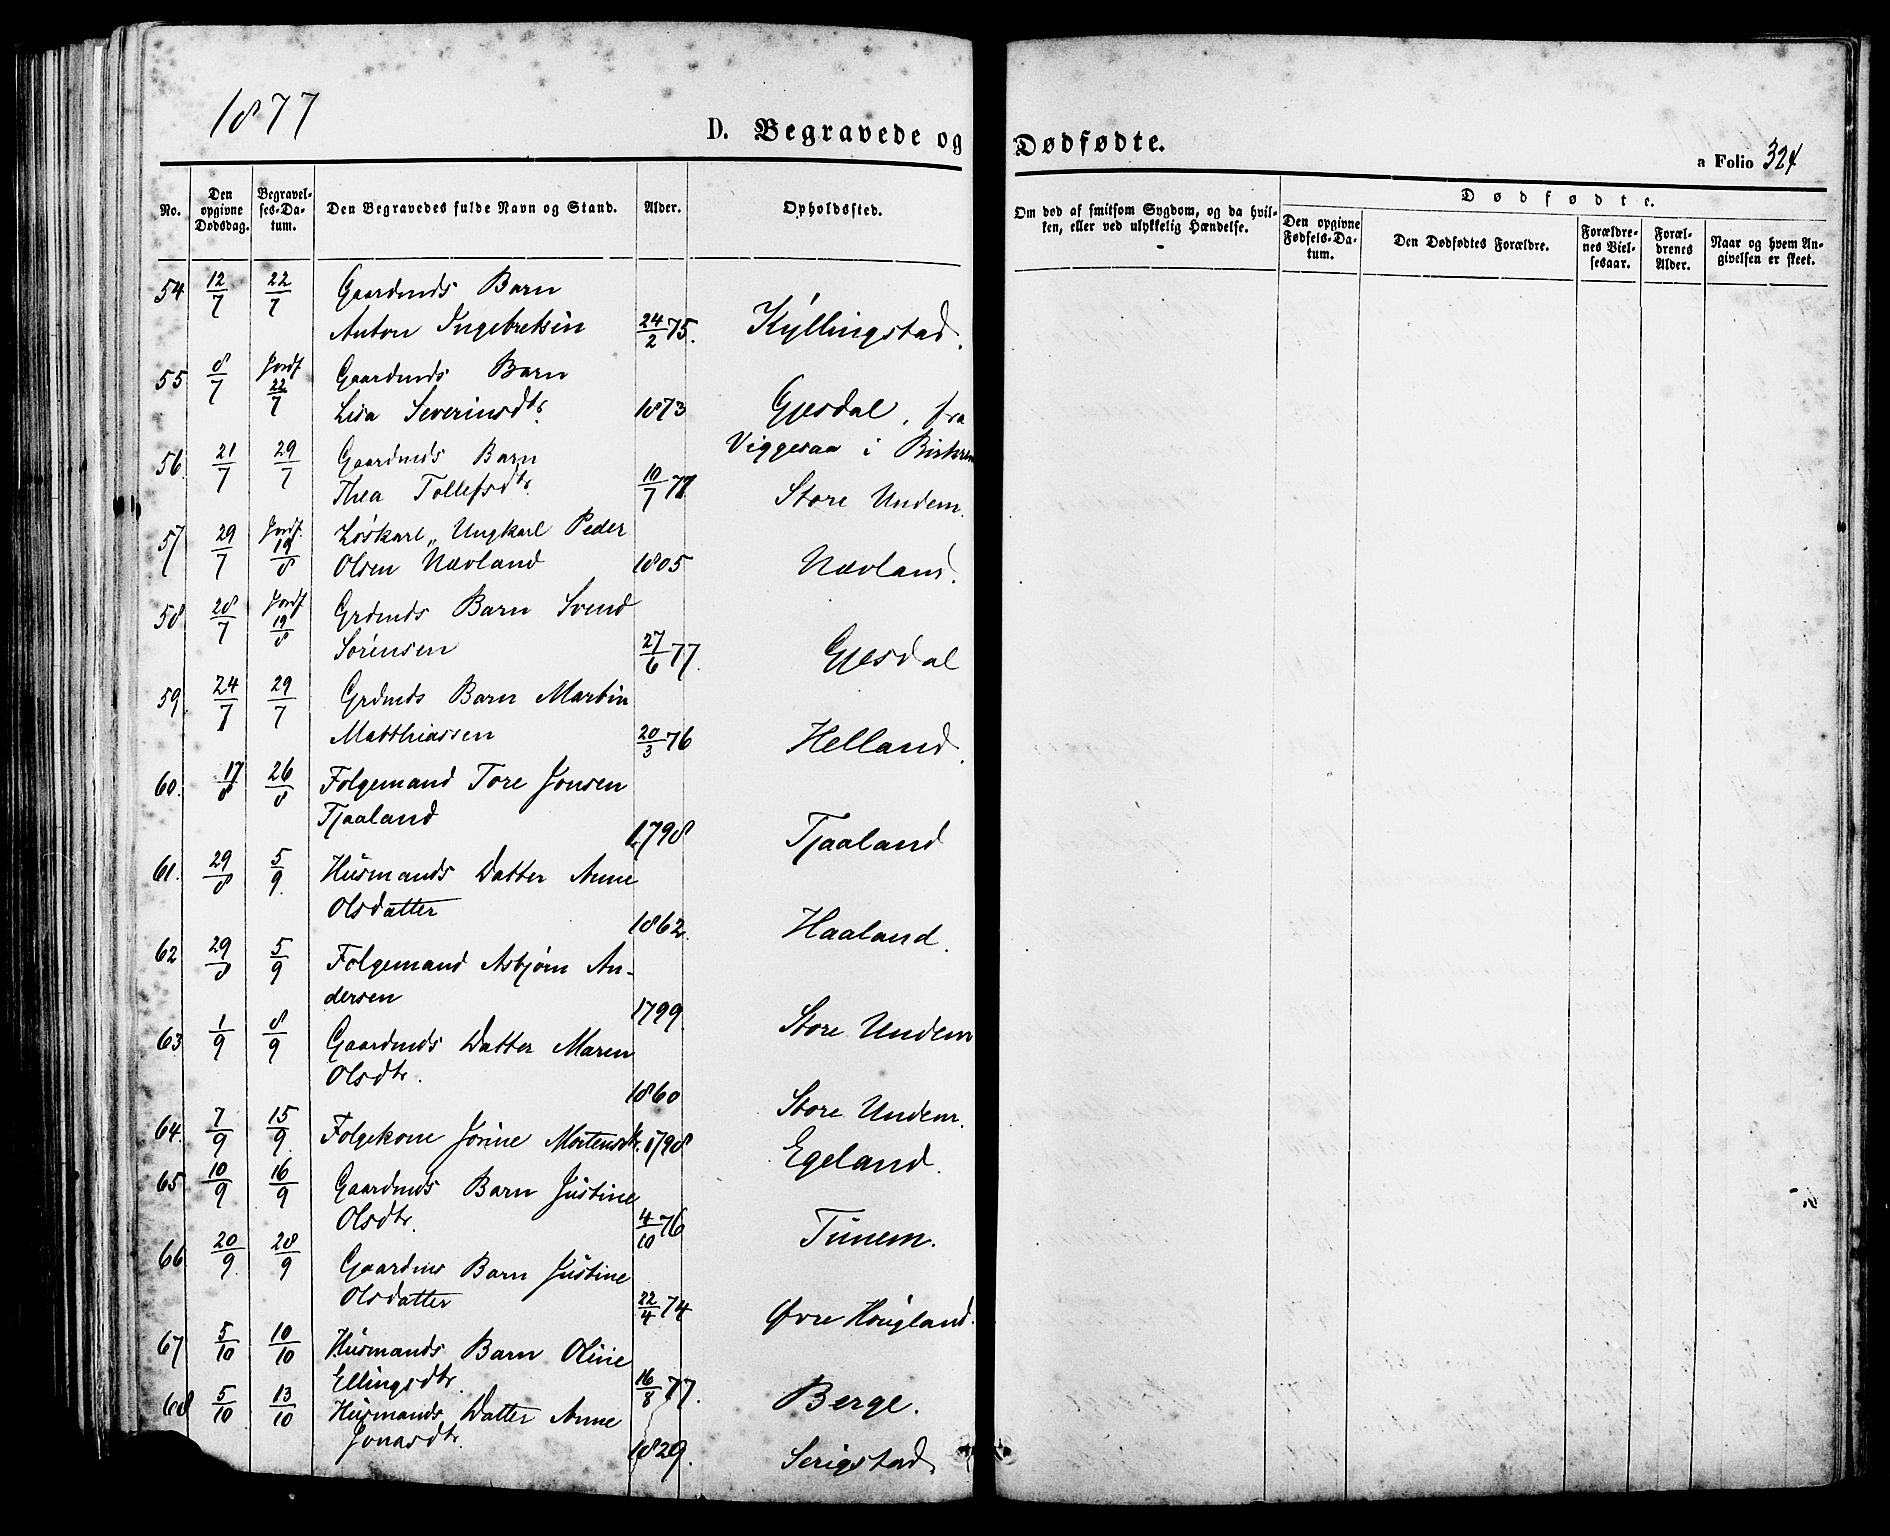 1877
D. Begravede og Dødfødte.
a Folio 324
No.
Den opgivne Dødsdag.
Begravelses-Datum.
Den Begravedes fulde Navn og Stand.
Alder.
Opholdssted.
Om død af smitsom Sygdom, og da hvilken, eller ved ulykkelig Hændelse.
Dødfødte.
Den opgivne Fødsels-Datum.
Den Dødfødtes Forældre.
Forældrenes Vielsesaar.
Forældrenes Alder.
Naar og hvem Angivelsen er skeet.
54 12/7 22/7 Gaardmds Barn
Anton Ingebretsen 24/2 75. Kyllingstad.
55 8/7 Jordf. 22/7 Gaardmds Barn
Lisa Severinsdtr. 1873 Gjesdal, fra
Viggesaa i Birkrem
56. 21/7 29/7 Gaardmds Barn
Thea Tollefsdtr. 10/7 77 Store Undem.
57 29/7 Jordf. 19/8 Løskarl, Ungkarl Peder
Olsen Nævland 1805 Nævland.
58 28/7 Jordf 19/8 Grdmds Barn Svend
Sørensen 27/6 77. Gjesdal
59 24/7 29/7 Grdmds Barn Martin
Matthiassen 20/3 76 Helland.
60. 17/8 26/8 Folgemand Tore Jonsen
Tjaaland 1798 Tjaaland
61. 29/8 5/9. Husmands Datter Anne
Olsdatter 1862. Haaland.
62 29/8 5/9 Folgemand Asbjørn An-
dersen 1799 Store Undem
63 1/9 8/9 Gaardmds Datter Maren
Olsdtr. 1860 Store Undem.
64. 7/9 15/9. Folgekone Jorine Mortensdtr. 1798 Egeland.
65 10/9 16/9 Gaardmds Barn Justine
Olsdtr. 4/10 76 Tunem.
66 20/9. 28/9 Gaardms Barn Justine
Olsdatter 22/4 74 Øvre Hougland.
67 5/10 10/10 Husmands Barn Oline
Ellingsdtr. 16/8 77. Berge.
68 5/10 13/10 Husmands Datter Anne
Jonasdtr. 1829. Serigstad.